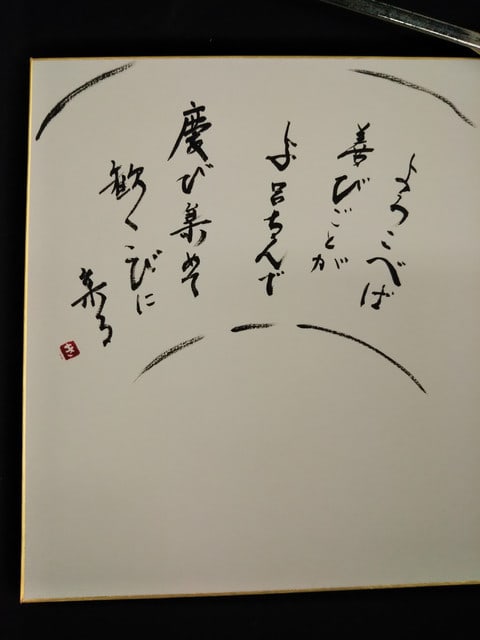 よろこべば
善びごとが
よ呂古んで
慶び集めて
歓こびに
来る
き